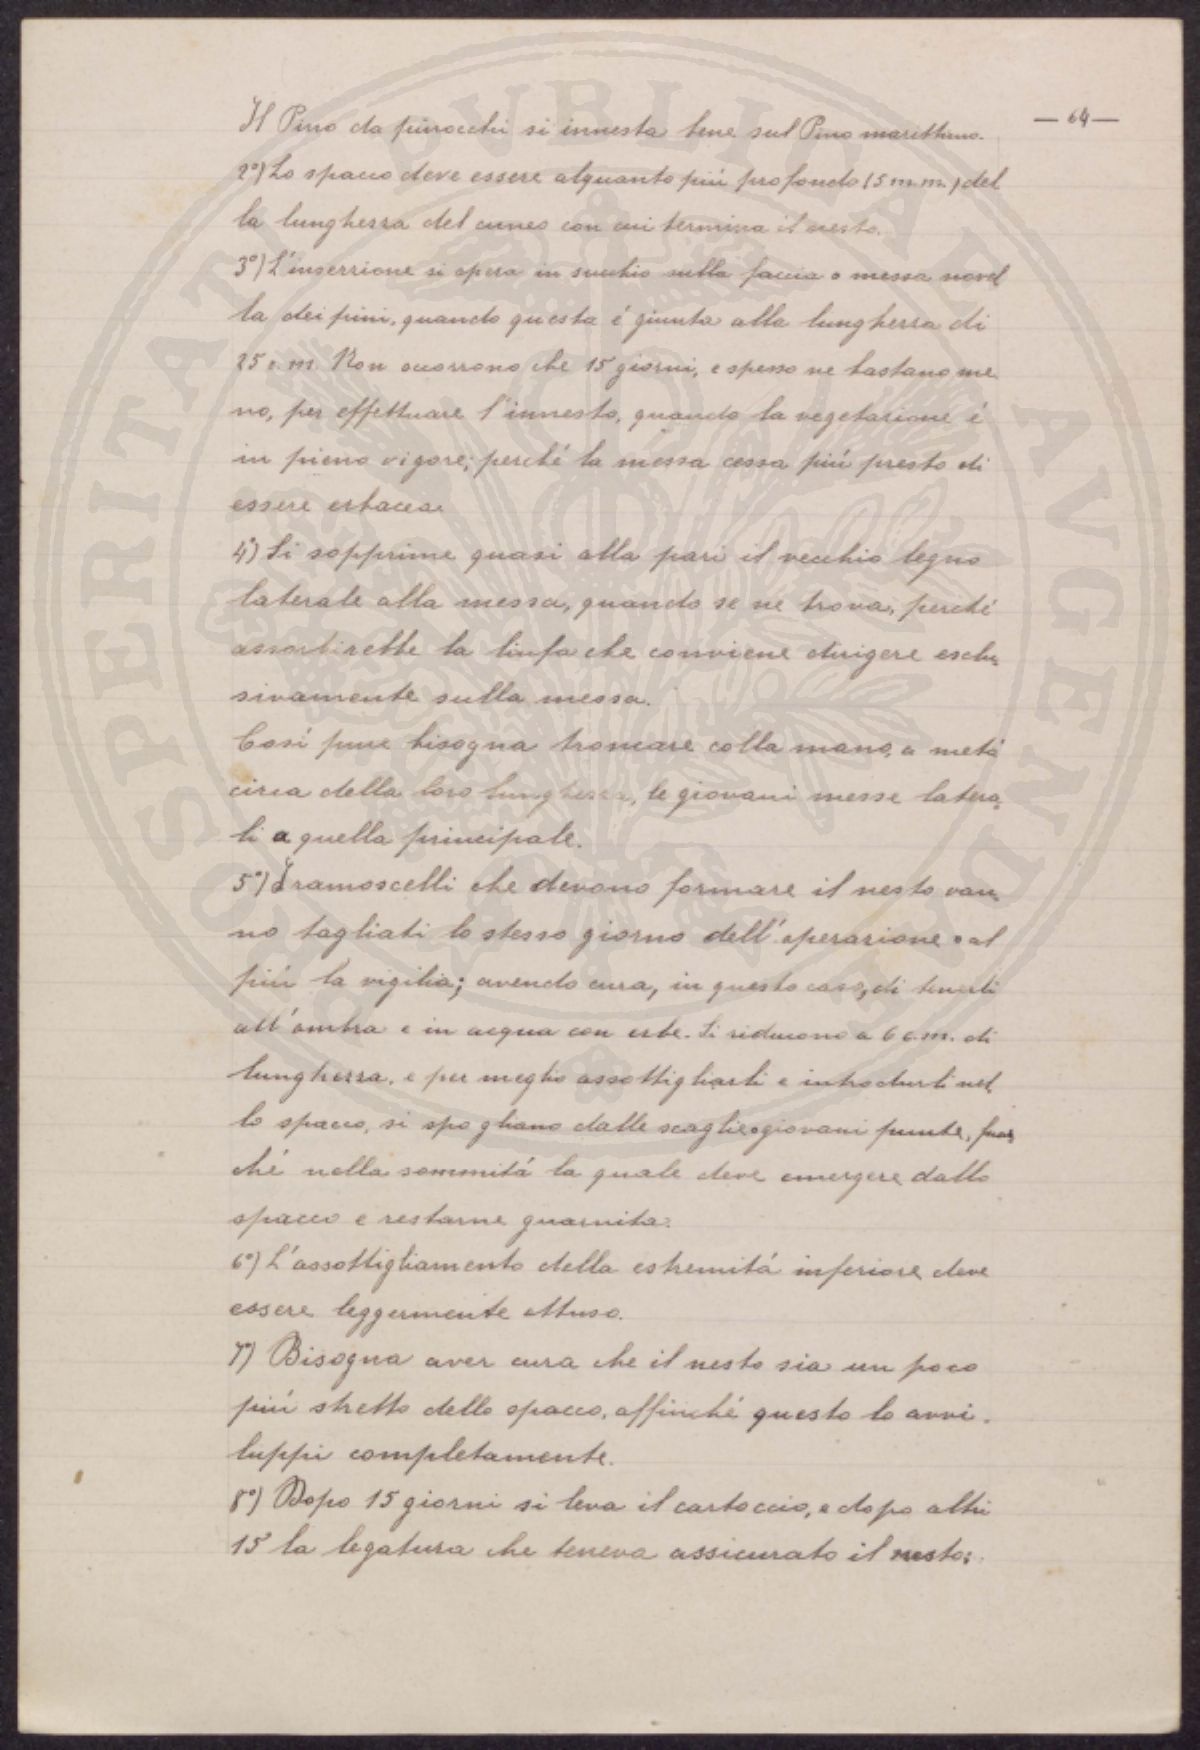 — 64 —
Il Pino da pinocchi si innesta bene sul Pino marittimo.
2°) Lo spacco deve essere alquanto piú profondo (5 m.m.) del
la lunghezza del cuneo con cui termina il nesto.
3°) L'inserzione si opera in succhio sulla faccia o messa novel
la dei pini, quando questa é giunta alla lunghezza di
25 c.m. Non occorrono che 15 giorni, e spesso ne bastano me
no, per effettuare l'innesto, quando la vegetazione é
in pieno vigore; perché la messa cessa piú presto di
essere erbacea.
4°) Si sopprime quasi alla pari il vecchio legno
laterale alla messa, quando se ne trova, perché
assorbirebbe la linfa che conviene dirigere esclu
sivamente sulla messa.
Cosí pure bisogna troncare colla mano, a metá
circa della loro lunghezza, le giovani messe latera
li a quella principale.
5°) I ramoscelli che devono formare il nesto van
no tagliati lo stesso giorno dell'operazione o al
piú la vigilia; avendo cura, in questo caso, di tenerli
all'ombra e in acqua con erbe. Si riducono a 6 c.m. di
lunghezza, e per meglio assottigliarli e introdurli nel
lo spacco, si spogliano dalle scaglie o giovani punte, fuor
ché nella sommitá la quale deve emergere dallo
spacco e restarne guarnita.
6°) L'assottigliamento della estremitá inferiore deve
essere leggermente ottuso.
7°) Bisogna aver cura che il nesto sia un poco
piú stretto dello spacco, affinché questo lo avvi-
luppi completamente.
8°) Dopo 15 giorni si leva il cartoccio, e dopo altri
15 la legatura che teneva assicurato il nesto;
PVBLICAE AVGENDAE PROSPERITATI